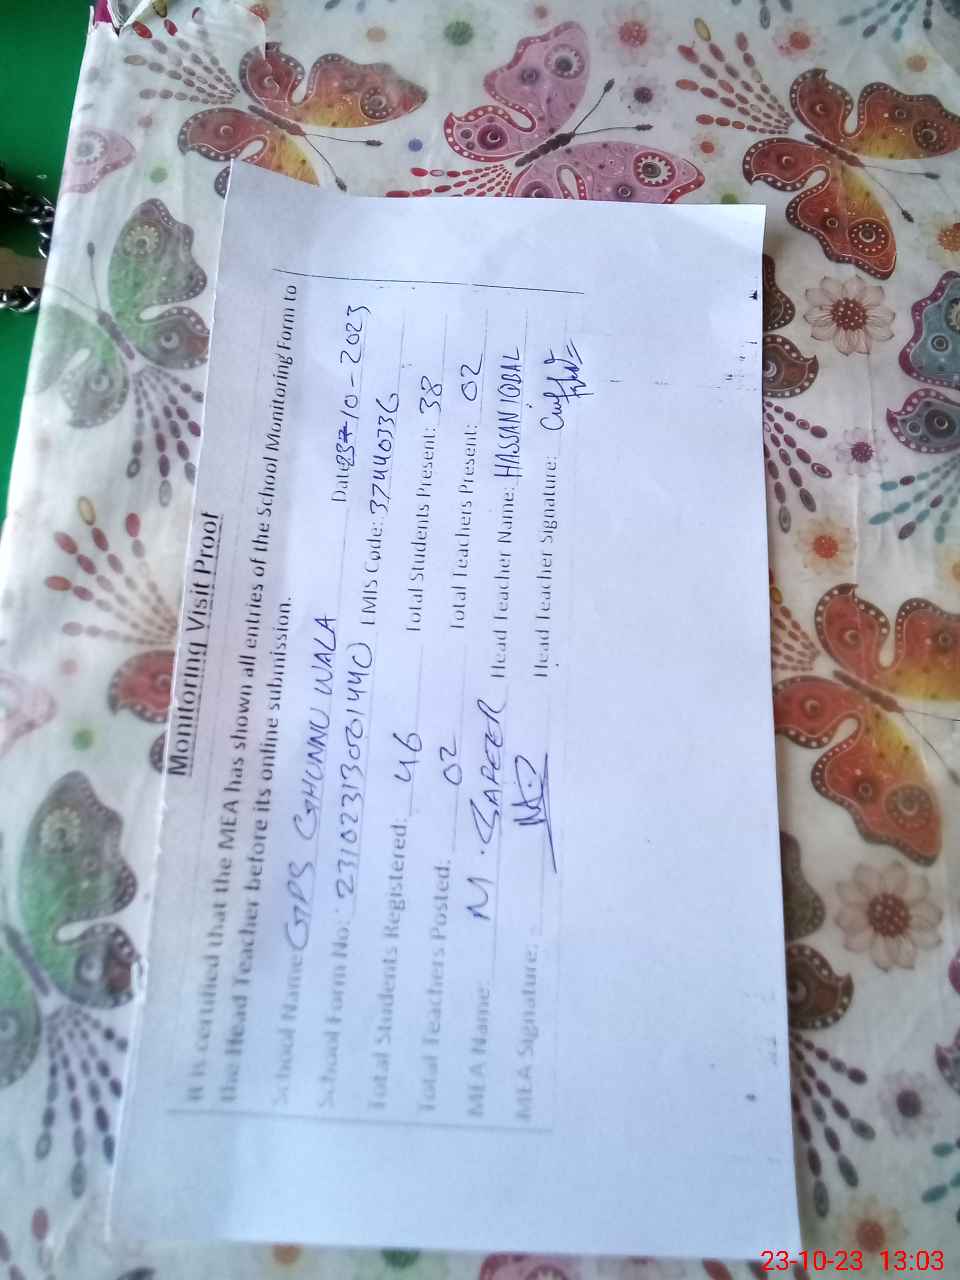 Monitoring Visit Proof
It is certified that the MEA has shown all entries of the School Monitoring Form to
the Head Teacher before its online submission.
School Name: GPS GHUNNU WALA Date: 23-10-2023
School Form No.: EMIS Code: 37440336
Total Students Registered: 46 Total Students Present: 38
Total Teachers Posted: 02 Total Teachers Present: 02
MEA Name: M. Head Teacher Name: HASSAN IQBAL
MEA Signature: Head Teacher Signature:
23-10-23 13:03